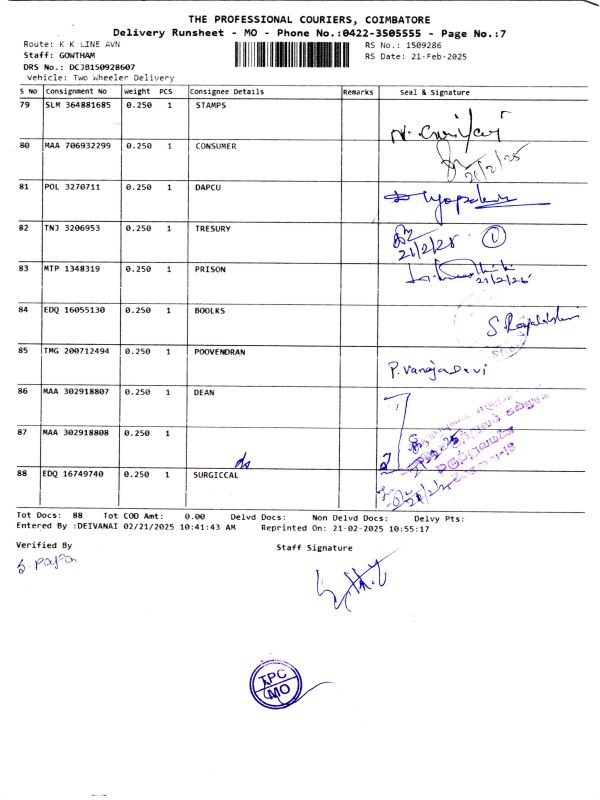 THE PROFESSIONAL COURIERS, COIMBATORE
Delivery Runsheet - MO - Phone No.:0422-3505555 - Page No.:7
Route: K K LINE AVN RS No.: 1509286
Staff: GOWTHAM RS Date: 21-Feb-2025
DRS No.: DCJB150928607
Vehicle: Two Wheeler Delivery
S No Consignment No Weight PCS Consignee Details Remarks Seal & Signature
79 SLM 364881685 0.250 1 STAMPS
80 MAA 706932299 0.250 1 CONSUMER 21/2/25
81 POL 3270711 0.250 1 DAPCU
82 TNJ 3206953 0.250 1 TRESURY 21/2/25 1
83 MTP 1348319 0.250 1 PRISON 21/2/25
84 EDQ 16055130 0.250 1 BOOLKS
85 TMG 200712494 0.250 1 POOVENDRAN P. Vanaja Devi
86 MAA 302918807 0.250 1 DEAN
87 MAA 302918808 0.250 1
88 EDQ 16749740 0.250 1 SURGICCAL
Tot Docs: 88 Tot COD Amt: 0.00 Delvd Docs: Non Delvd Docs: Delvy Pts:
Entered By :DEIVANAI 02/21/2025 10:41:43 AM Reprinted On: 21-02-2025 10:55:17
Verified By Staff Signature
S. Papa
TPC
MO